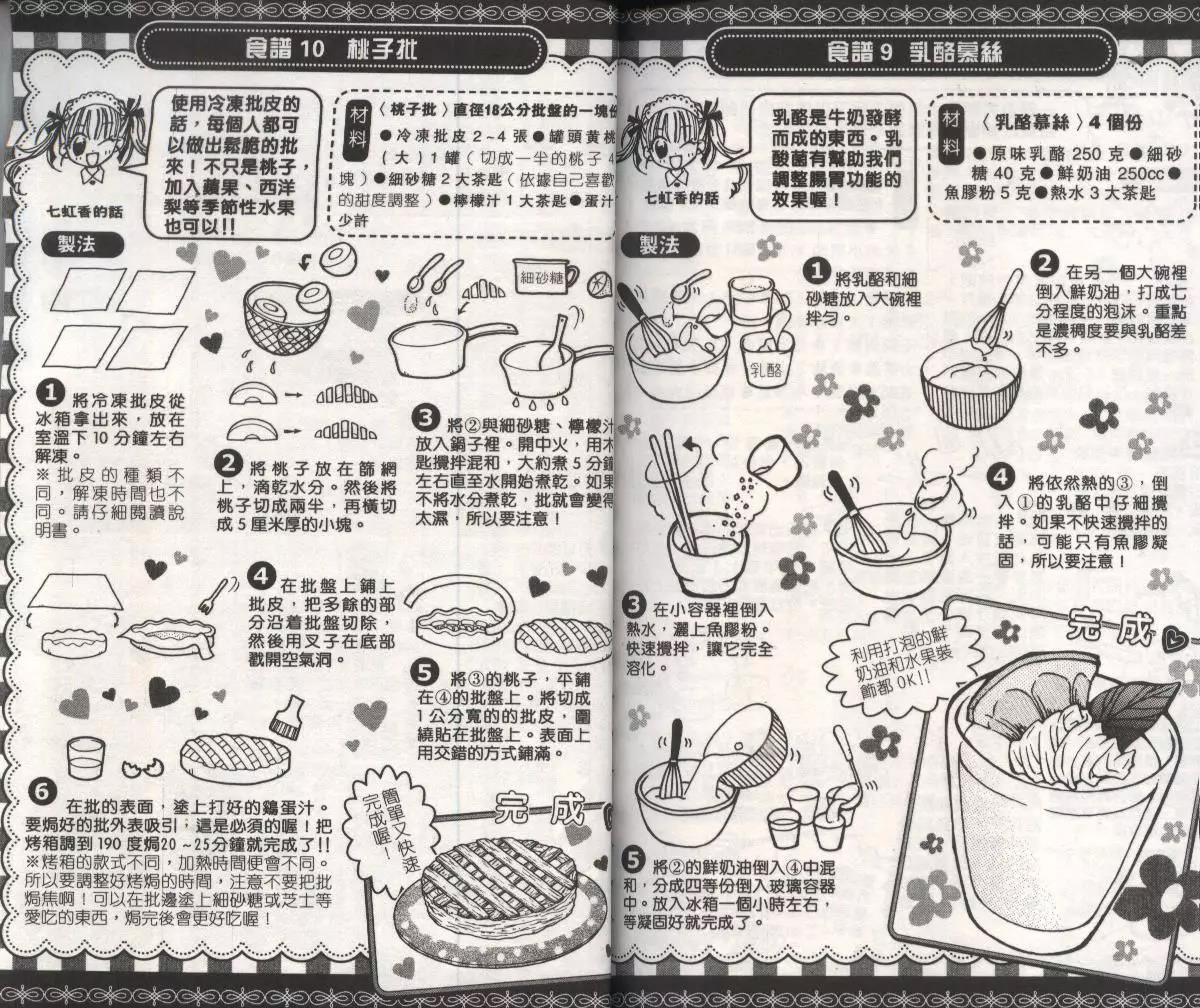 食譜 9 乳酪慕絲
乳酪是牛奶發酵
而成的東西。乳
酸菌有幫助我們
調整腸胃功能的
效果喔！
七虹香的話
材料
〈乳酪慕絲〉4 個份
●原味乳酪 250 克●細砂
糖 40 克●鮮奶油 250cc●
魚膠粉 5 克●熱水 3 大茶匙
製法
乳酪
❶ 將乳酪和細
砂糖放入大碗裡
拌勻。
❷ 在另一個大碗裡
倒入鮮奶油，打成七
分程度的泡沫。重點
是濃稠度要與乳酪差
不多。
❸ 在小容器裡倒入
熱水，灑上魚膠粉。
快速攪拌，讓它完全
溶化。
❹ 將依然熱的③，倒
入①的乳酪中仔細攪
拌。如果不快速攪拌的
話，可能只有魚膠凝
固，所以要注意！
❺ 將②的鮮奶油倒入④中混
和，分成四等份倒入玻璃容器
中。放入冰箱一個小時左右，
等凝固好就完成了。
利用打泡的鮮
奶油和水果裝
飾都 OK!!
完成
食譜 10 桃子批
使用冷凍批皮的
話，每個人都可
以做出鬆脆的批
來！不只是桃子，
加入蘋果、西洋
梨等季節性水果
也可以!!
七虹香的話
材料
〈桃子批〉直徑18公分批盤的一塊份
●冷凍批皮 2~4 張●罐頭黃桃
（大）1 罐（切成一半的桃子 4
塊）●細砂糖 2 大茶匙（依據自己喜歡
的甜度調整）●檸檬汁 1 大茶匙●蛋汁
少許
製法
細砂糖
❶ 將冷凍批皮從
冰箱拿出來，放在
室溫下 10 分鐘左右
解凍。
※批皮的種類不
同，解凍時間也不
同。請仔細閱讀說
明書。
❷ 將桃子放在篩網
上，滴乾水分。然後將
桃子切成兩半，再橫切
成 5 厘米厚的小塊。
❸ 將②與細砂糖、檸檬汁
放入鍋子裡。開中火，用木
匙攪拌混和，大約煮 5 分鐘
左右直至水開始煮乾。如果
不將水分煮乾，批就會變得
太濕，所以要注意！
❹ 在批盤上鋪上
批皮，把多餘的部
分沿着批盤切除，
然後用叉子在底部
戳開空氣洞。
❺ 將③的桃子，平鋪
在④的批盤上。將切成
1 公分寬的的批皮，圍
繞貼在批盤上。表面上
用交錯的方式鋪滿。
❻ 在批的表面，塗上打好的鷄蛋汁。
要焗好的批外表吸引，這是必須的喔！把
烤箱調到 190 度焗20 ~25分鐘就完成了!!
※烤箱的款式不同，加熱時間便會不同。
所以要調整好烤焗的時間，注意不要把批
焗焦啊！可以在批邊塗上細砂糖或芝士等
愛吃的東西，焗完後會更好吃喔！
簡單又快速
完成喔！
完成